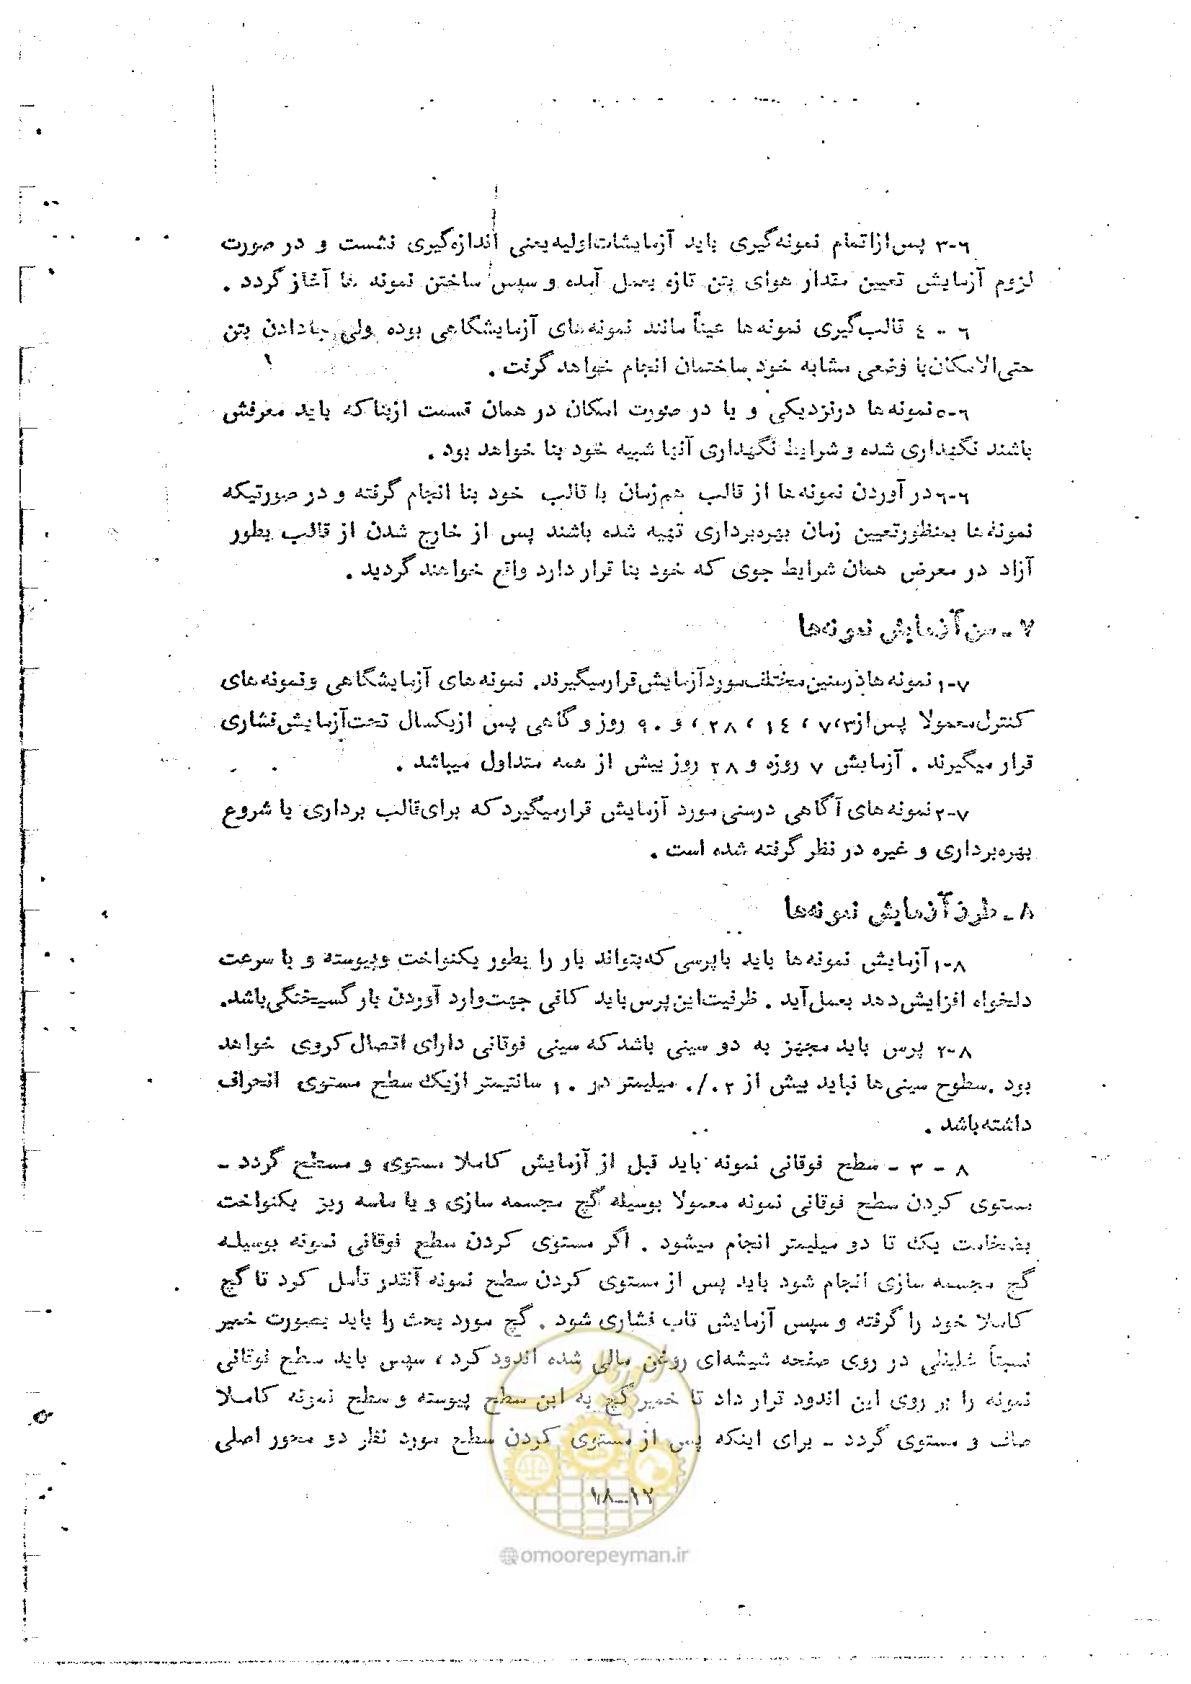 ۶-۳ پس‌ازاتمام نمونه‌گیری باید آزمایشات‌اولیه‌یعنی اندازه‌گیری نشست و در صورت
لزوم آزمایش تعیین مقدار هوای بتن تازه بعمل آمده و سپس ساختن نمونه ها آغاز گردد .
۶ - ٤ قالب‌گیری نمونه‌ها عیناً مانند نمونه‌های آزمایشگاهی بوده ولی جادادن بتن
حتی‌الامکان‌با وضعی مشابه خود ساختمان انجام خواهد گرفت .
۶-۵ نمونه‌ها درنزدیکی و یا در صورت امکان در همان قسمت ازبناکه باید معرفش
باشند نگهداری شده و شرایط نگهداری آنها شبیه خود بنا خواهد بود .
۶-۶ در آوردن نمونه‌ها از قالب همزمان با قالب خود بنا انجام گرفته و در صورتیکه
نمونه‌ها بمنظورتعیین زمان بهره‌برداری تهیه شده باشند پس از خارج شدن از قالب بطور
آزاد در معرض همان شرایط جوی که خود بنا قرار دارد واقع خواهند گردید .
۷ ـ سن آزمایش نمونه‌ها
۷-۱ نمونه‌ها درسنین مختلف مورد آزمایش قرارمیگیرند. نمونه های آزمایشگاهی ونمونه‌های
کنترل معمولا پس از ۳، ۷ ، ۱٤ ، ۲۸ ، و ۹۰ روز و گاهی پس ازیکسال تحت‌آزمایش‌فشاری
قرار میگیرند . آزمایش ۷ روزه و ۲۸ روز بیش از همه متداول میباشد .
۷-۲ نمونه های آگاهی درسنی مورد آزمایش قرارمیگیرد که برای‌قالب برداری یا شروع
بهره‌برداری و غیره در نظر گرفته شده است .
۸ ـ طرز آزمایش نمونه‌ها
۸-۱ آزمایش نمونه‌ها باید باپرسی که‌بتواند بار را بطور یکنواخت وپیوسته و با سرعت
دلخواه افزایش‌دهد بعمل‌آید . ظرفیت‌این‌پرس‌باید کافی جهت‌وارد آوردن بار گسیختگی‌باشد.
۸-۲ پرس باید مجهز به دو سینی باشد که سینی فوقانی دارای اتصال کروی خواهد
بود .سطوح سینی‌ها نباید بیش از ۰/۰۲ میلیمتر در ۱۰ سانتیمتر ازیک سطح مستوی انحراف
داشته‌باشد .
۸ - ۳ - سطح فوقانی نمونه باید قبل از آزمایش کاملا مستوی و مسطح گردد ـ
مستوی کردن سطح فوقانی نمونه معمولا بوسیله گچ مجسمه سازی و یا ماسه ریز یکنواخت
بضخامت یک تا دو میلیمتر انجام میشود . اگر مستوی کردن سطح فوقانی نمونه بوسیله
گچ مجسمه سازی انجام شود باید پس از مستوی کردن سطح نمونه آنقدر تأمل کرد تا گچ
کاملا خود را گرفته و سپس آزمایش تاب فشاری شود . گچ مورد بحث را باید بصورت خمیر
نسبتاً غلیظی در روی صفحه شیشه‌ای روغن مالی شده اندود کرد ، سپس باید سطح فوقانی
نمونه را بر روی این اندود قرار داد تا خمیر گچ به این سطح پیوسته و سطح نمونه کاملا
صاف و مستوی گردد ـ برای اینکه پس از مستوی کردن سطح مورد نظر دو محور اصلی
۱۸-۱۲
@omoorepeyman.ir